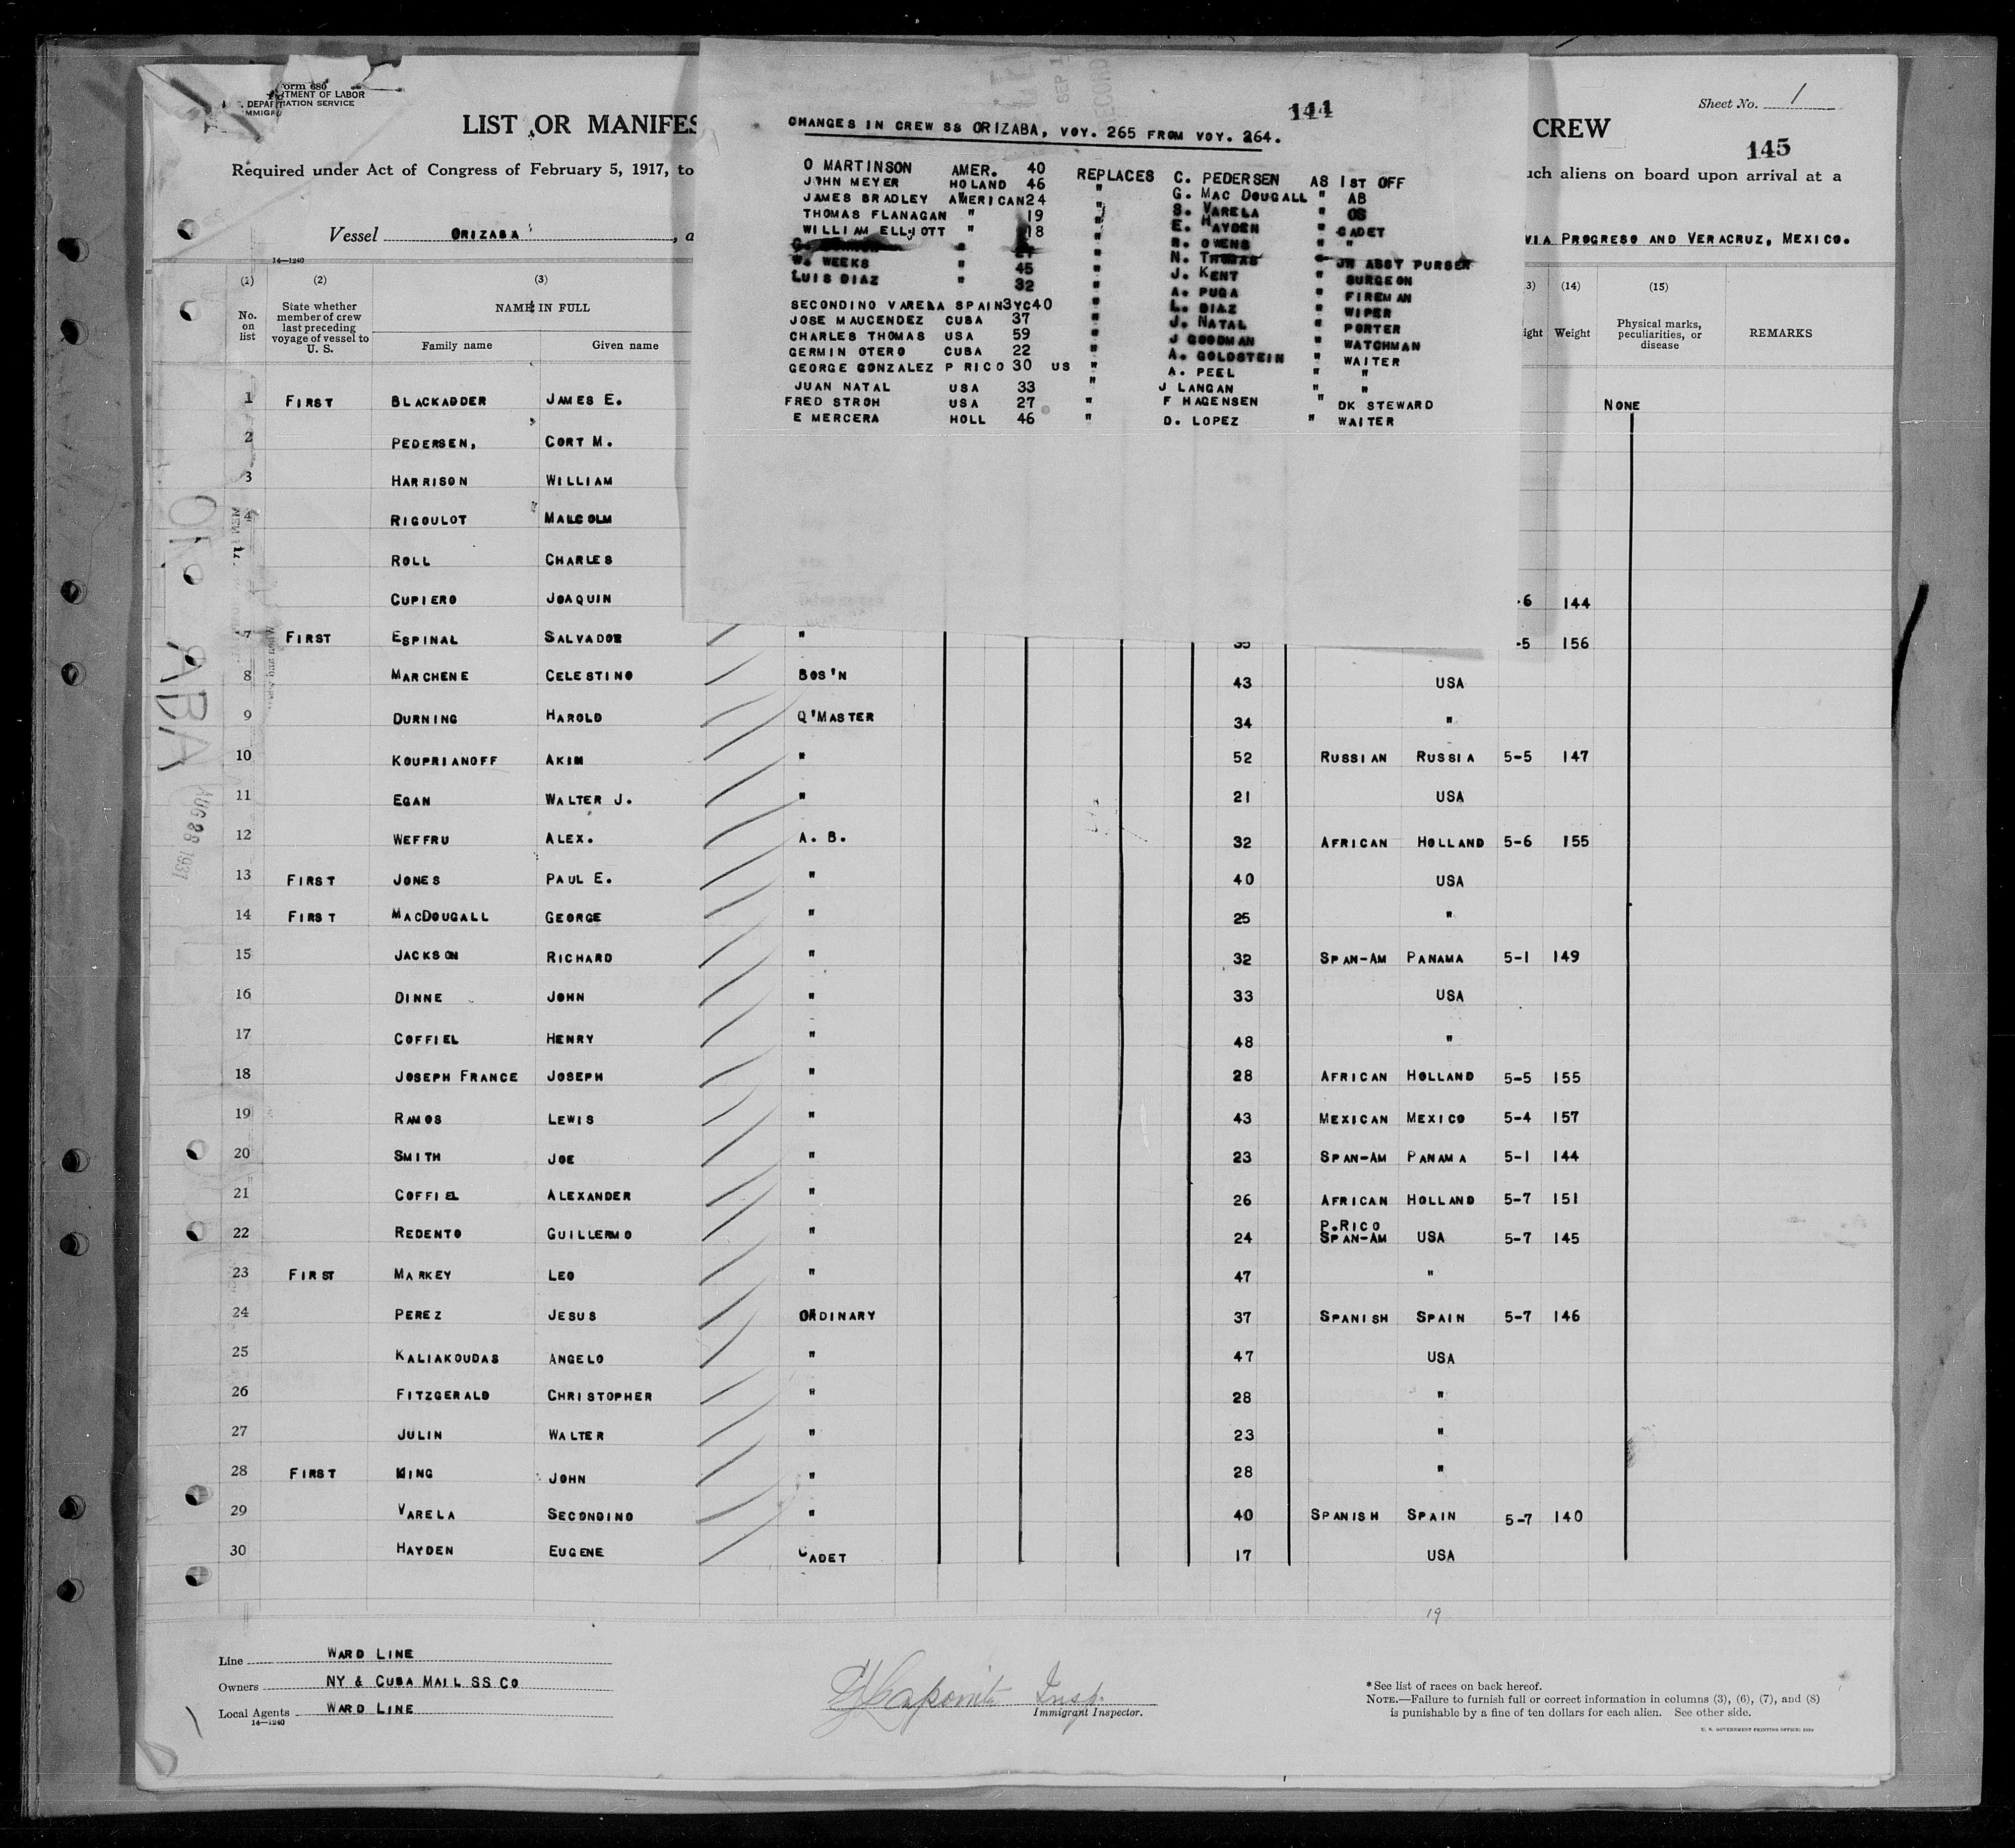 144
CHANGES IN CREW SS ORIZABA, VOY. 265 FROM VOY. 264.
O MARTINSON AMER. 40 REPLACES C. PEDERSEN AS 1ST OFF
JOHN MEYER HOLAND 46 " G. MAC DOUGALL " AB
JAMES BRADLEY AMERICAN 24 " S. VARELA " OS
THOMAS FLANAGAN " 19 " E. HAYDEN " CADET
WILLIAM ELLIOTT " 18 " R. OWENS " "
" N. THOMAS JR ASST PURSER
W. WEEKS " 45 " J. KENT " SURGEON
LUIS DIAZ " 32 " A. PUGA " FIREMAN
SECONDINO VARELA SPAIN3YC40 " L. DIAZ " WIPER
JOSE MAUCENDEZ CUBA 37 " J. NATAL " PORTER
CHARLES THOMAS USA 59 " J GOODMAN " WATCHMAN
GERMIN OTERO CUBA 22 " A. GOLDSTEIN " WAITER
GEORGE GONZALEZ P RICO 30 US " A. PEEL " "
JUAN NATAL USA 33 " J LANGAN " "
FRED STROH USA 27 " F HAGENSEN " DK STEWARD
E MERCERA HOLL 46 " D. LOPEZ " WAITER
Form 680
DEPARTMENT OF LABOR
IMMIGRATION SERVICE
Sheet No. 1
LIST OR MANIFES CREW
145
Required under Act of Congress of February 5, 1917, to such aliens on board upon arrival at a
Vessel ORIZABA , a VIA PROGRESO AND VERACRUZ, MEXICO.
14—1240
(1) (2) (3) (14) (15)
No. on list State whether member of crew last preceding voyage of vessel to U. S. NAME IN FULL Family name Given name Weight Physical marks, peculiarities, or disease REMARKS
1 FIRST BLACKADDER JAMES E. NONE
2 PEDERSEN, CORT M.
3 HARRISON WILLIAM
4 RIGOULOT MALCOLM
ROLL CHARLES
CUPIERO JOAQUIN -6 144
7 FIRST ESPINAL SALVADOR " 35 -5 156
8 MARCHENE CELESTINO BOS'N 43 USA
9 DURNING HAROLD Q'MASTER 34 "
10 KOUPRIANOFF AKIM " 52 RUSSIAN RUSSIA 5-5 147
11 EGAN WALTER J. " 21 USA
12 WEFFRU ALEX. A. B. 32 AFRICAN HOLLAND 5-6 155
13 FIRST JONES PAUL E. " 40 USA
14 FIRST MACDOUGALL GEORGE " 25 "
15 JACKSON RICHARD " 32 SPAN-AM PANAMA 5-1 149
16 DINNE JOHN " 33 USA
17 COFFIEL HENRY " 48 "
18 JOSEPH FRANCE JOSEPH " 28 AFRICAN HOLLAND 5-5 155
19 RAMOS LEWIS " 43 MEXICAN MEXICO 5-4 157
20 SMITH JOE " 23 SPAN-AM PANAMA 5-1 144
21 COFFIEL ALEXANDER " 26 AFRICAN HOLLAND 5-7 151
22 REDENTO GUILLERMO " 24 P.RICO SPAN-AM USA 5-7 145
23 FIRST MARKEY LEO " 47 "
24 PEREZ JESUS ORDINARY 37 SPANISH SPAIN 5-7 146
25 KALIAKOUDAS ANGELO " 47 USA
26 FITZGERALD CHRISTOPHER " 28 "
27 JULIN WALTER " 23 "
28 FIRST KING JOHN " 28 "
29 VARELA SECONDINO " 40 SPANISH SPAIN 5-7 140
30 HAYDEN EUGENE CADET 17 USA
19
AUG 28 1937
Line WARD LINE
Owners NY & CUBA MAIL SS CO
Local Agents WARD LINE
14—1240
Insp.
Immigrant Inspector.
*See list of races on back hereof.
NOTE.—Failure to furnish full or correct information in columns (3), (6), (7), and (8)
is punishable by a fine of ten dollars for each alien. See other side.